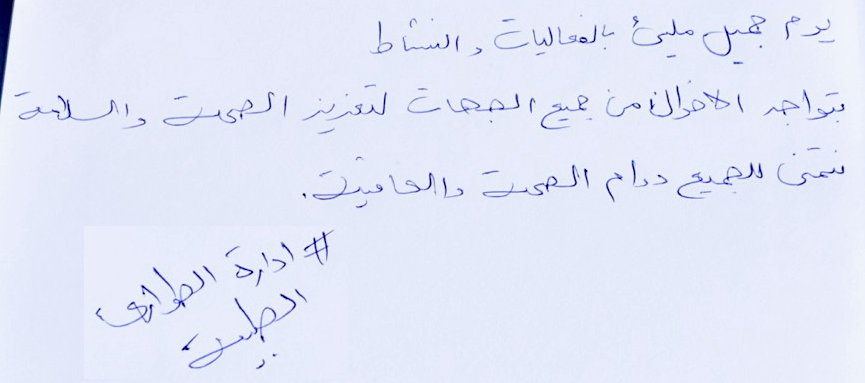 يوم جميل مليئ بالفعاليات والنشاط
بتواجد الاخوان من جميع الجهات لتعزيز الصحة والسلامة
نتمنى للجميع دوام الصحة والعافية.
#ادارة الطوارئ
الطبية